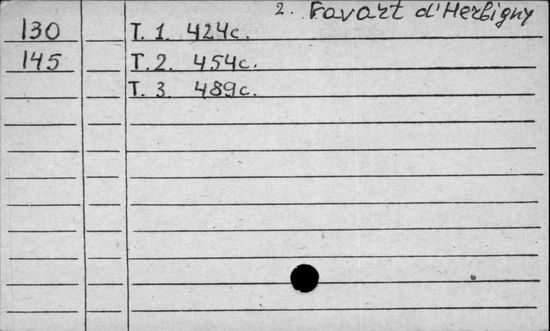 2. Favart d'Herbigny
130 T. 1. 424c.
145 T. 2. 454c.
T. 3. 489c.